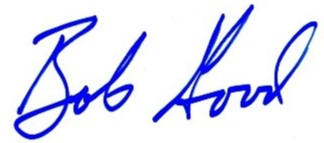 Bob Good